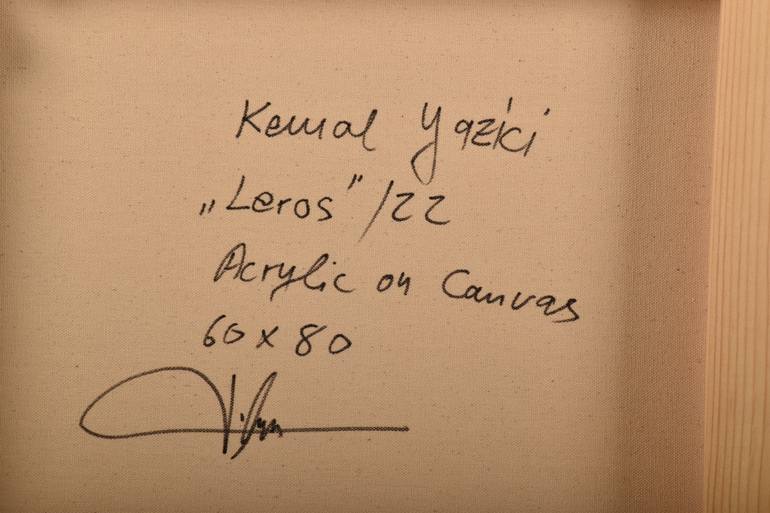 Kemal Yaziki
„Leros” /22
Acrylic on Canvas
60 x 80